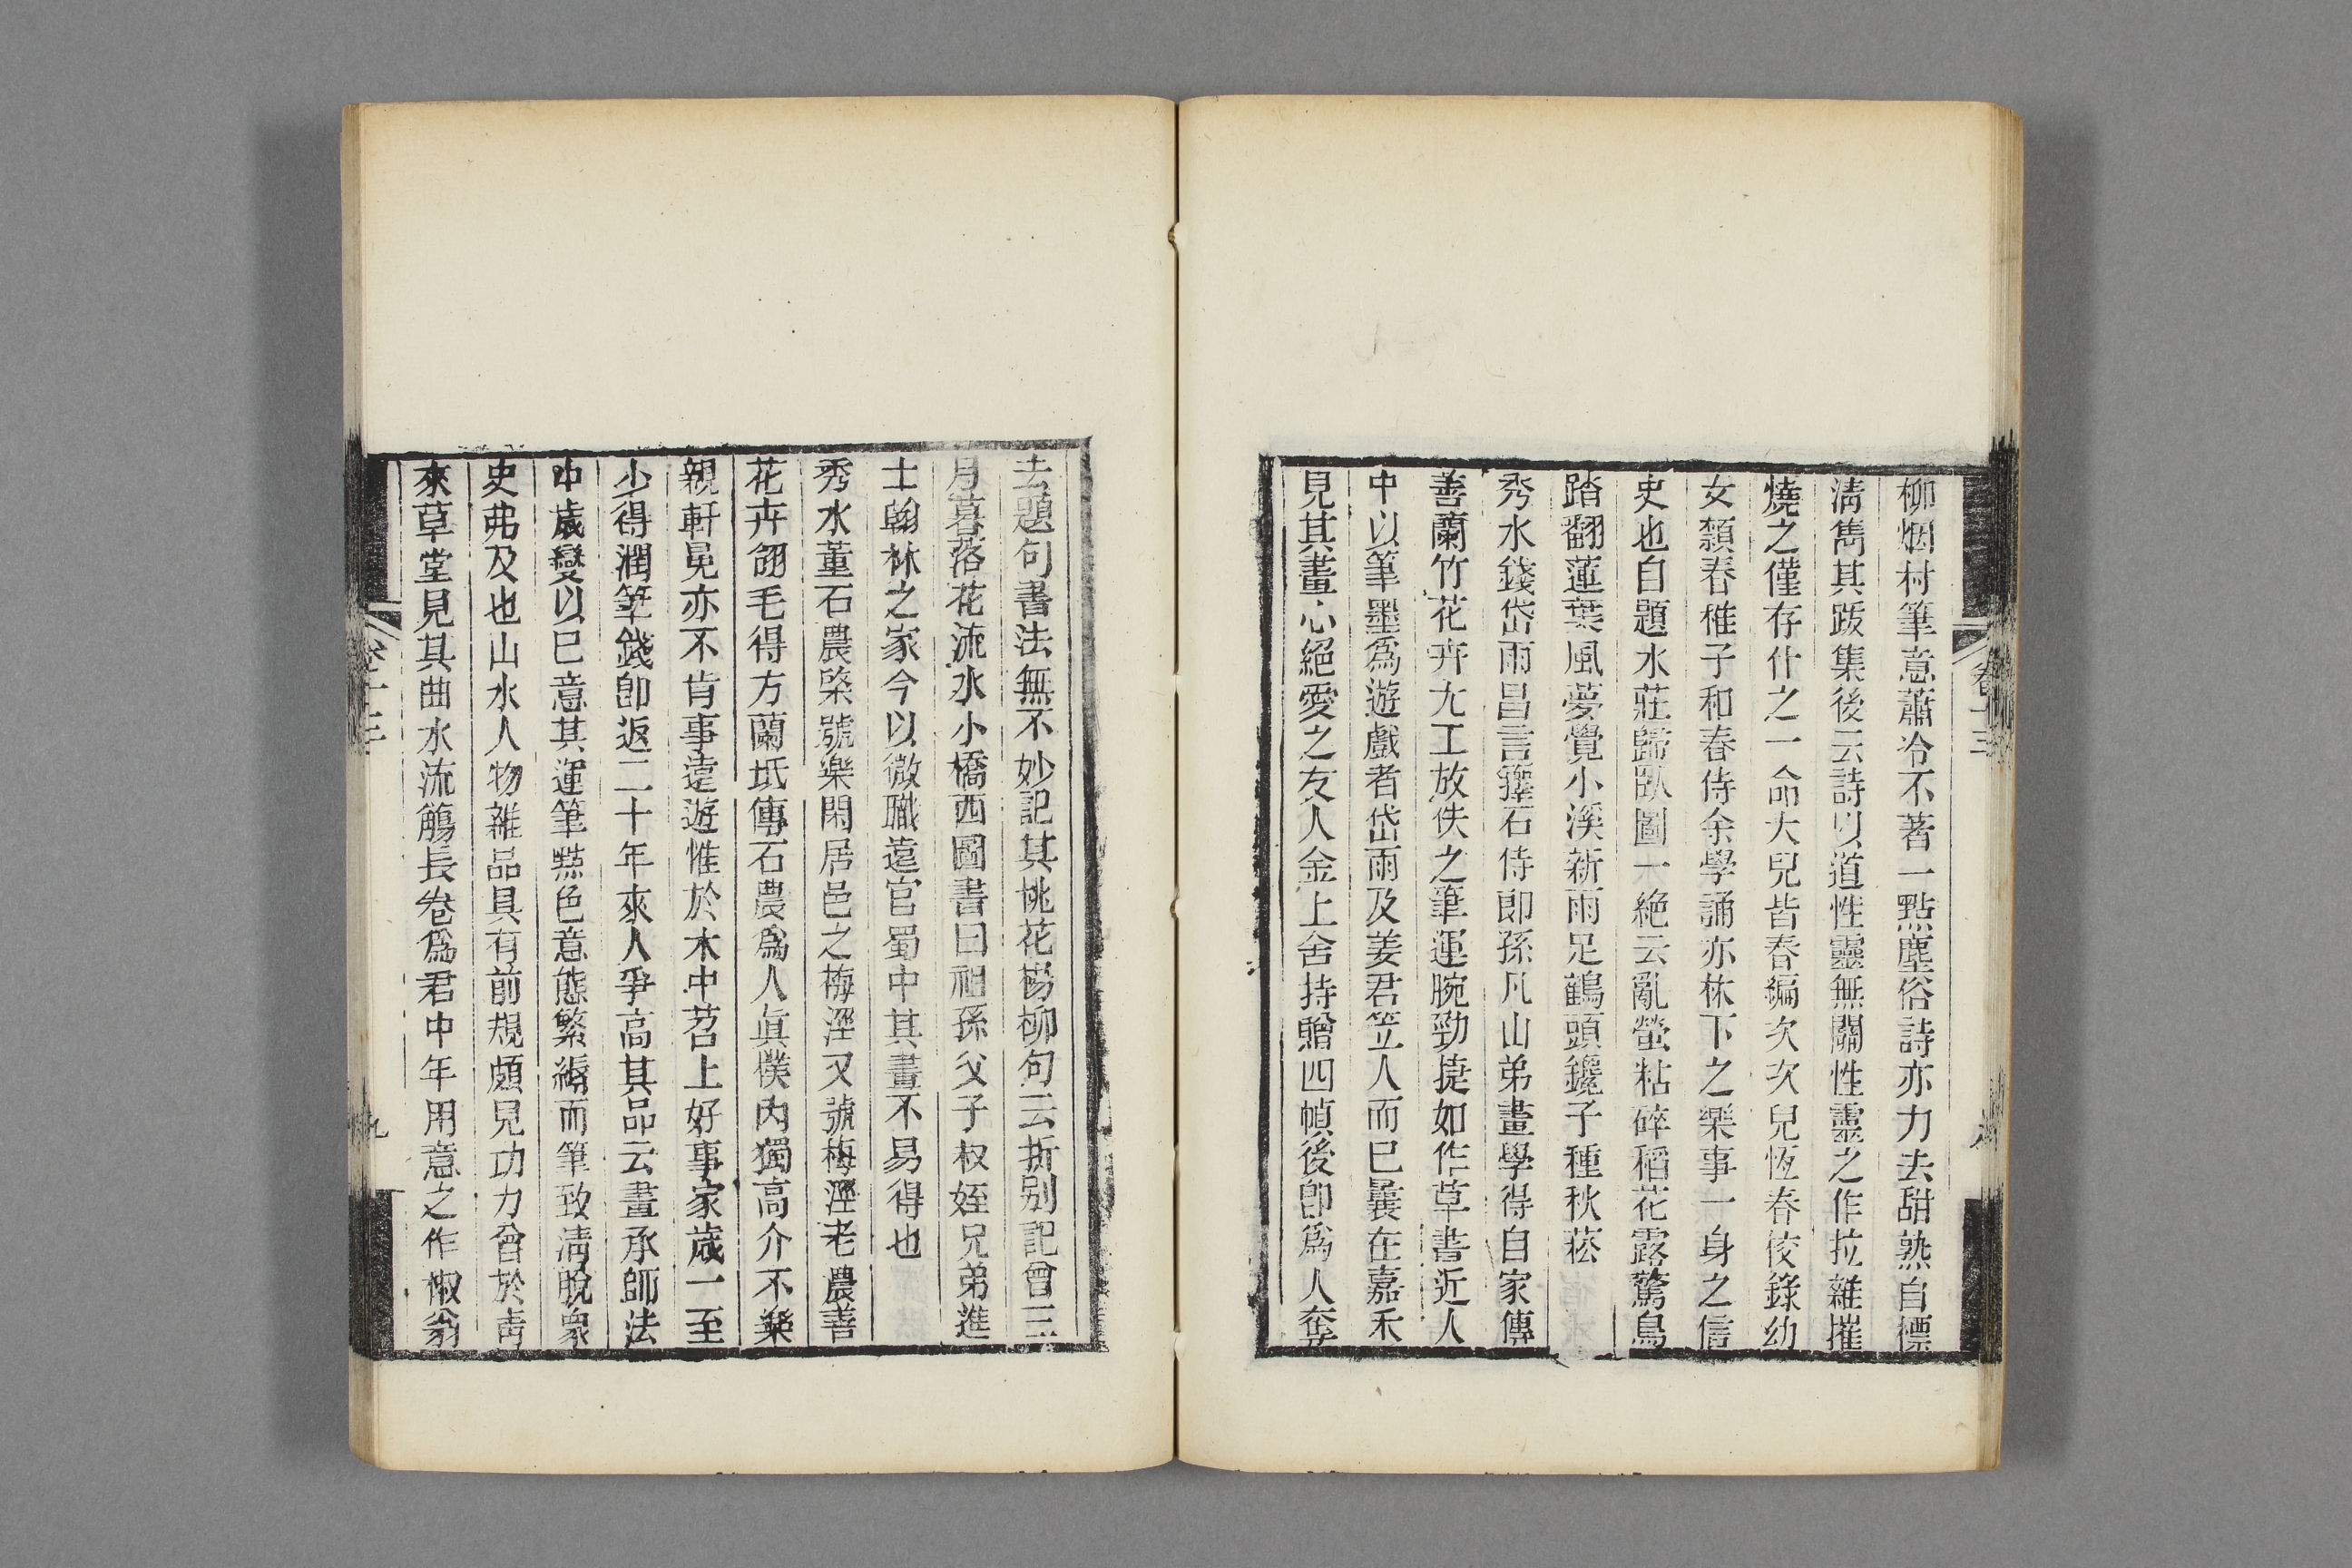 柳烟村筆意蕭冷不著一點塵俗詩亦力去甜熟自標
清雋其跋集後云詩以道性靈無關性靈之作拉雜摧
燒之僅存什之一命大兒皆春編次次兒恆春校錄幼
女纇春稚子和春侍余學誦亦林下之樂事一身之信
史也自題水莊歸臥圖一絕云亂螢粘碎稻花露驚鳥
踏翻蓮葉風夢覺小溪新雨足鶴頭鑱子種秋菘
秀水錢岱雨昌言籜石侍郎孫凡山弟畫學得自家傳
善蘭竹花卉尤工放佚之筆運腕勁捷如作草書近人
中以筆墨爲遊戲者岱雨及姜君笠人而已曩在嘉禾
見其畫心絕愛之友人金上舍持贈四幀後卽爲人奪
卷十三
去題句書法無不妙記其桃花楊柳句云折別記曾三
月暮落花流水小橋西圖書曰祖孫父子叔姪兄弟進
士翰林之家今以微職遠官蜀中其畫不易得也
秀水董石農棨號樂閑居邑之梅涇又號梅涇老農善
花卉翎毛得方蘭坻傳石農爲人眞樸內獨高介不樂
親軒冕亦不肯事遠遊惟於木中苕上好事家歲一至
少得潤筆錢卽返二十年來人爭高其品云畫承師法
中歲變以已意其運筆𤋮色意態繁縟而筆致清脫象
史弗及也山水人物雜品具有前規頗見功力曾於靑
來草堂見其曲水流觴長卷爲君中年用意之作椒翁
卷十三
九